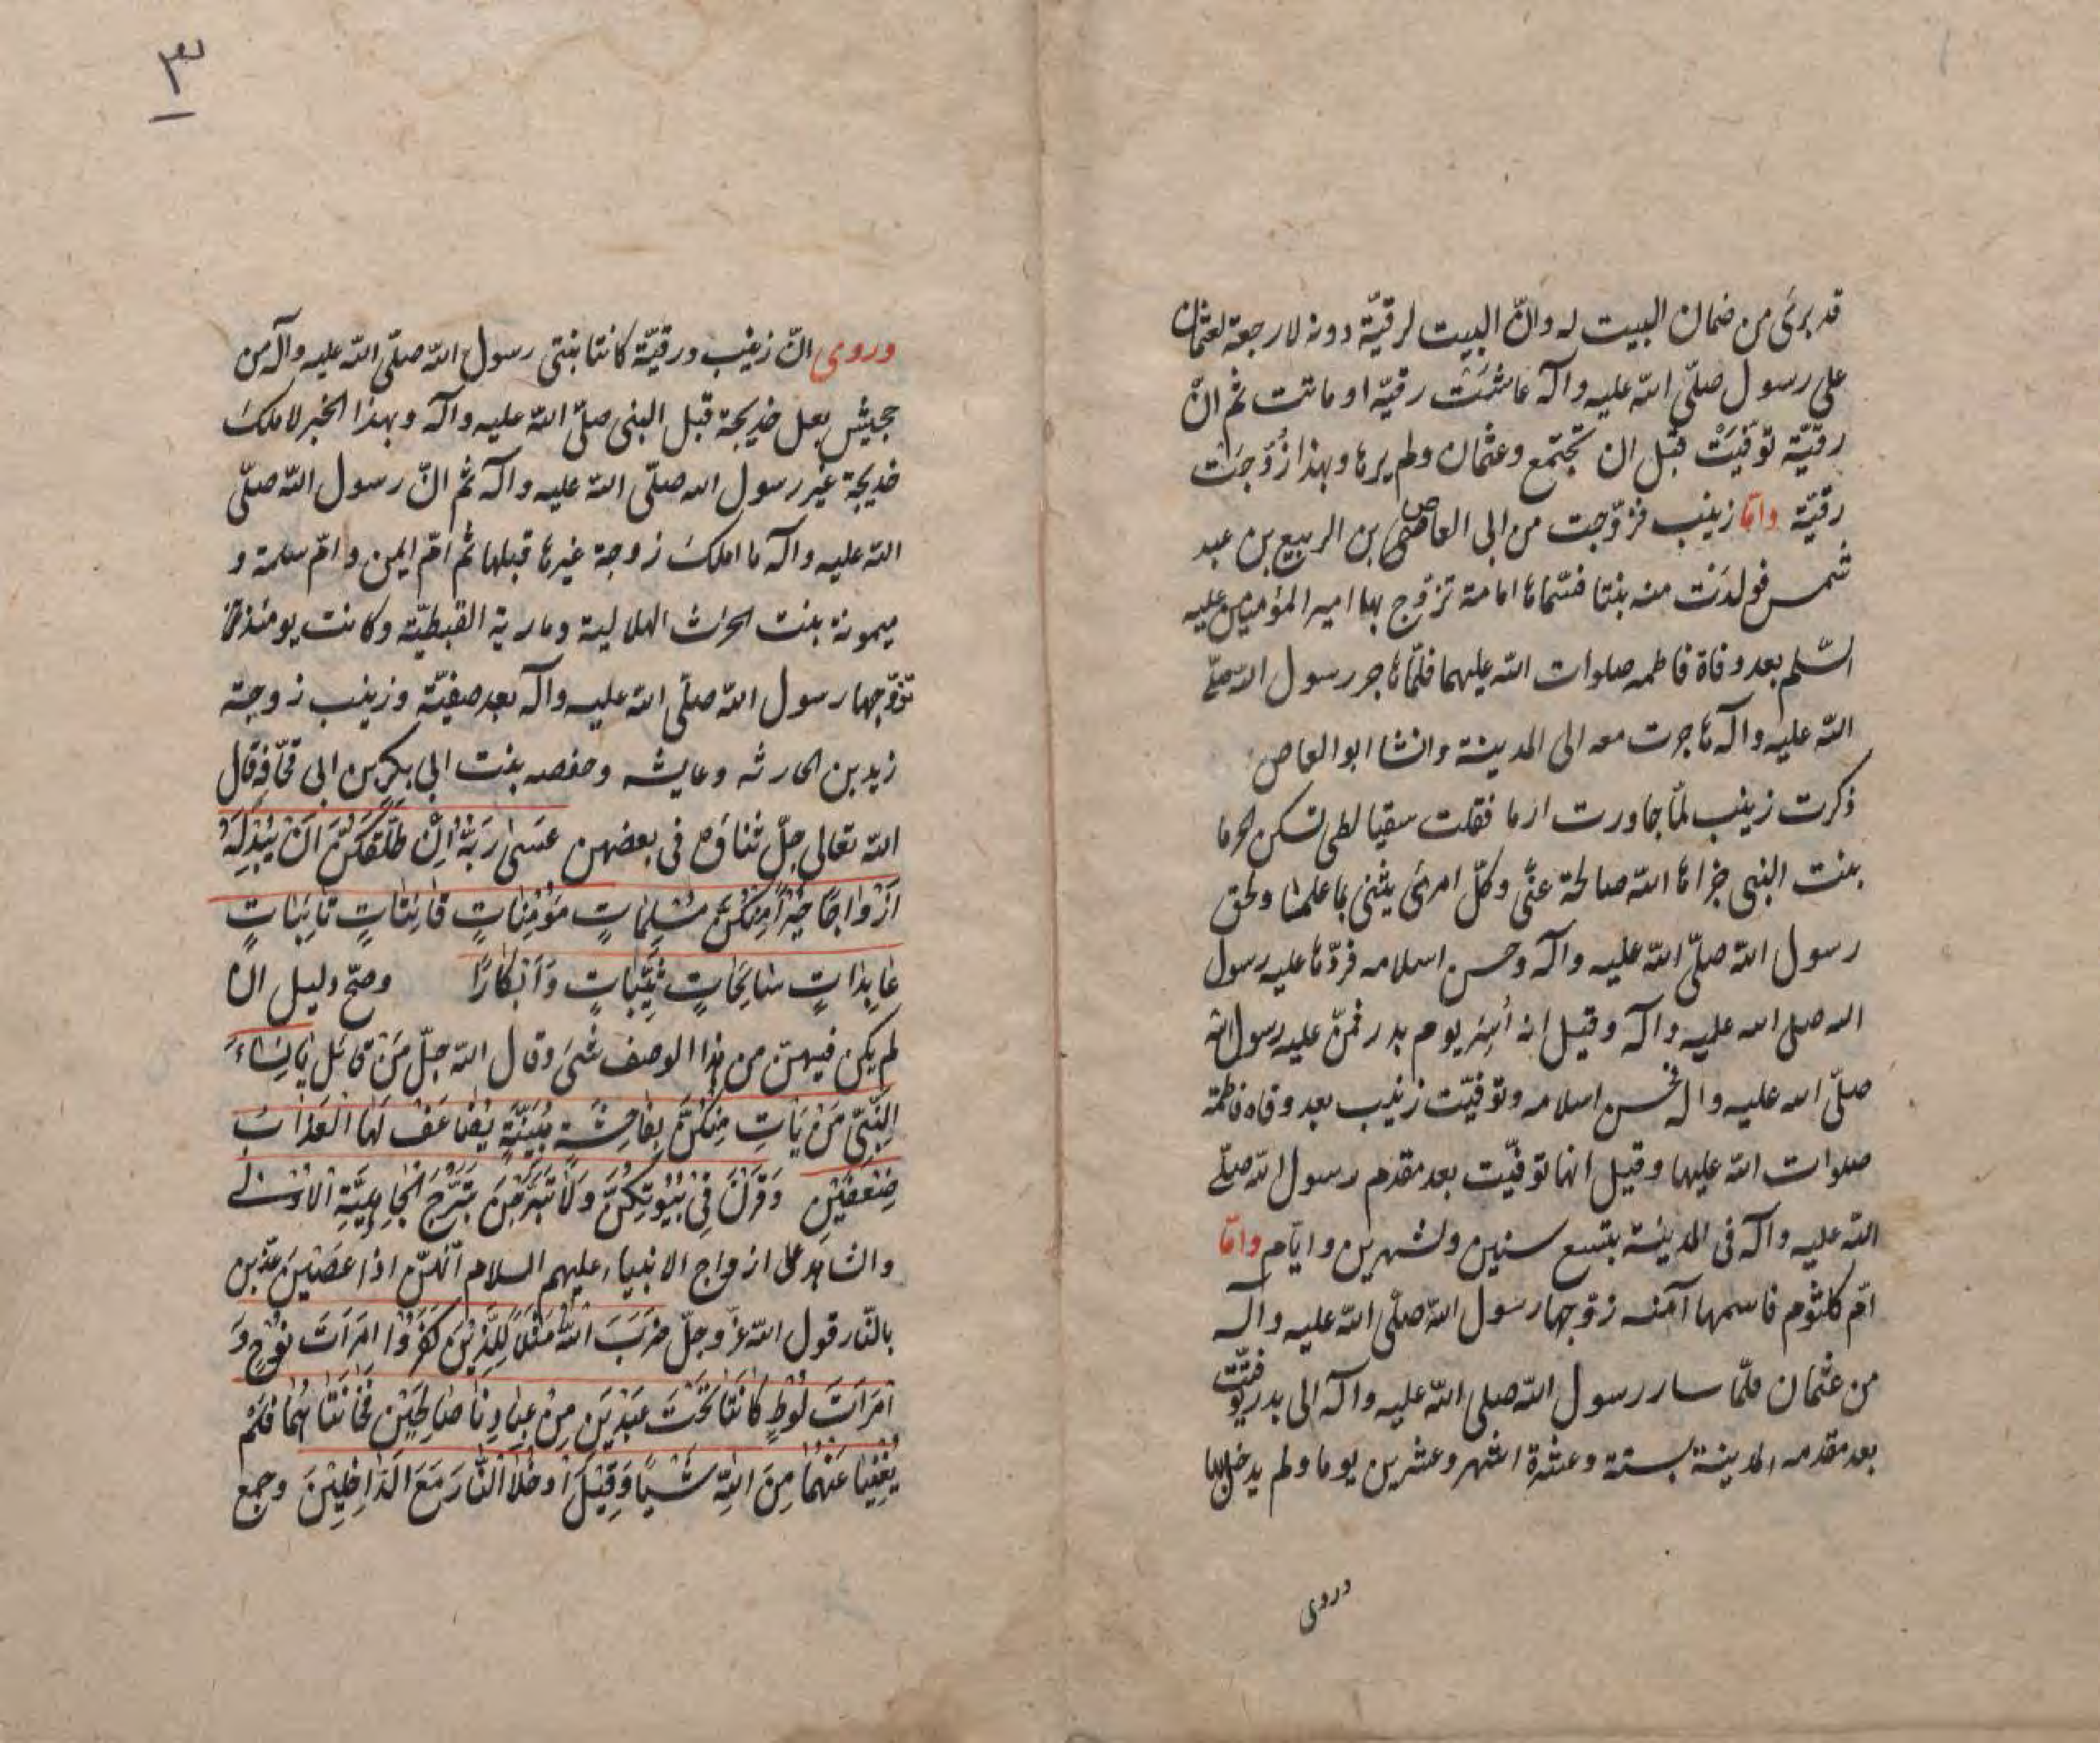 قد برئ من ضمان البيت له وانّ البيت لرقيّة دونه لا رجعة لعثمان
على رسول صلّى الله عليه وآله عاشَتْ رقيّه او ماتت ثم انّ
رقيّة توفّيَتْ قبل ان تجتمع وعثمان ولم يرها وبهذا زُوّجَتْ
رقيّة وامّا زينب فزوّجت من ابى العاص بن الربيع بن عبد
شمس فولدَت منه بنتا فسمّاها امامة تزوّج بها امير المؤمنين عليه
السّلم بعد وفاة فاطمه صلوات الله عليهما فلمّا هاجر رسول الله صلّى
الله عليه وآله هاجرت معه الى المدينة وانشا ابو العاص
ذكرت زينب لمّا جاورت ارما فقلت سقيا لطى تسكن الحرما
بنت النبى جزاها الله صالحة عنّى وكلّ امرئ يثنى بما علما ولحق
رسول الله صلّى الله عليه وآله وحسن اسلامه فردّها عليه رسول
الله صلى الله عليه وآله وقيل انه أُسِرَ يوم بدر فمنّ عليه رسول الله
صلّى الله عليه وال فحسن اسلامه وتوفيّت زينب بعد وفاه فاطمة
صلوات الله عليها وقيل انها توفيّت بعد مقدم رسول الله صلّى
الله عليه وآله فى المدينة بتسع سنين وشهرين وايّام وامّا
امّ كلثوم فاسمها آمنه زوّجها رسول الله صلّى الله عليه وآله
من عثمان فلمّا سار رسول الله صلى الله عليه وآله الى بدر توفيّت
بعد مقدمه المدينة بستة وعشرة اشهر وعشرين يوما ولم يدخل بها
وروى
٣
وروى انّ زينب ورقيّة كانتا بنتى رسول الله صلّى الله عليه وآله من
جحيش بعل خديجة قبل النبى صلّى الله عليه وآله وبهذا الخبر لا ملك
خديجة غير رسول الله صلّى الله عليه وآله ثم انّ رسول الله صلّى
الله عليه وآله ما املك زوجة غيرها قبلها ثم امّ ايمن وامّ سلمة و
ميمونة بنت الحرث الهلالية ومارية القبطيّة وكانت يومئذ
تزوّجها رسول الله صلّى الله عليه وآله بعد صفيّة وزينب زوجة
زيد بن الحارثه وعايشه وحفصه بنت ابي بكر بن ابى قحّافه قال
الله تعالى جلّ ثناؤه فى بعضهن عَسىٰ رَبُّهُ اِنْ طَلَّقَكُنَّ اَنْ يُبْدِلَهُ
اَزْواجًا خَيْرًا مِنْكُنَّ مُسْلِماتٍ مُؤْمِناتٍ قانِتاتٍ تائِباتٍ
عابِداتٍ سائِحاتٍ ثَيِّباتٍ وَاَبْكارًا وصحّ دليل ان
لم يكن فيهنّ من هذا الوصف شئ وقال الله جلّ من قائل يا نِساءَ
النَّبِىِّ مَنْ يَاْتِ مِنْكُنَّ بِفاحِشَةٍ مُبَيِّنَةٍ يُضاعَفْ لَهَا الْعَذابُ
ضِعْفَيْنِ وَقَرْنَ فِى بُيُوتِكُنَّ وَلا تَبَرَّجْنَ تَبَرُّجَ الْجاهِلِيَّةِ الْاُولى
والشاهد على ازواج الانبياء عليهم السلام انّهنّ اذا عَصَيْنَ عذّبن
بالنّار قول الله عزّ وجلّ ضَرَبَ اللهُ مَثَلاً لِلَّذِينَ كَفَرُوا امْرَاَتَ نُوحٍ وَ
امْرَاَتَ لُوطٍ كانَتا تَحْتَ عَبْدَيْنِ مِنْ عِبادِنا صالِحَيْنِ فَخانَتاهُما فَلَمْ
يُغْنِيا عَنْهُما مِنَ اللهِ شَيْئًا وَقِيلَ ادْخُلَا النّارَ مَعَ الدّاخِلِينَ وجمع